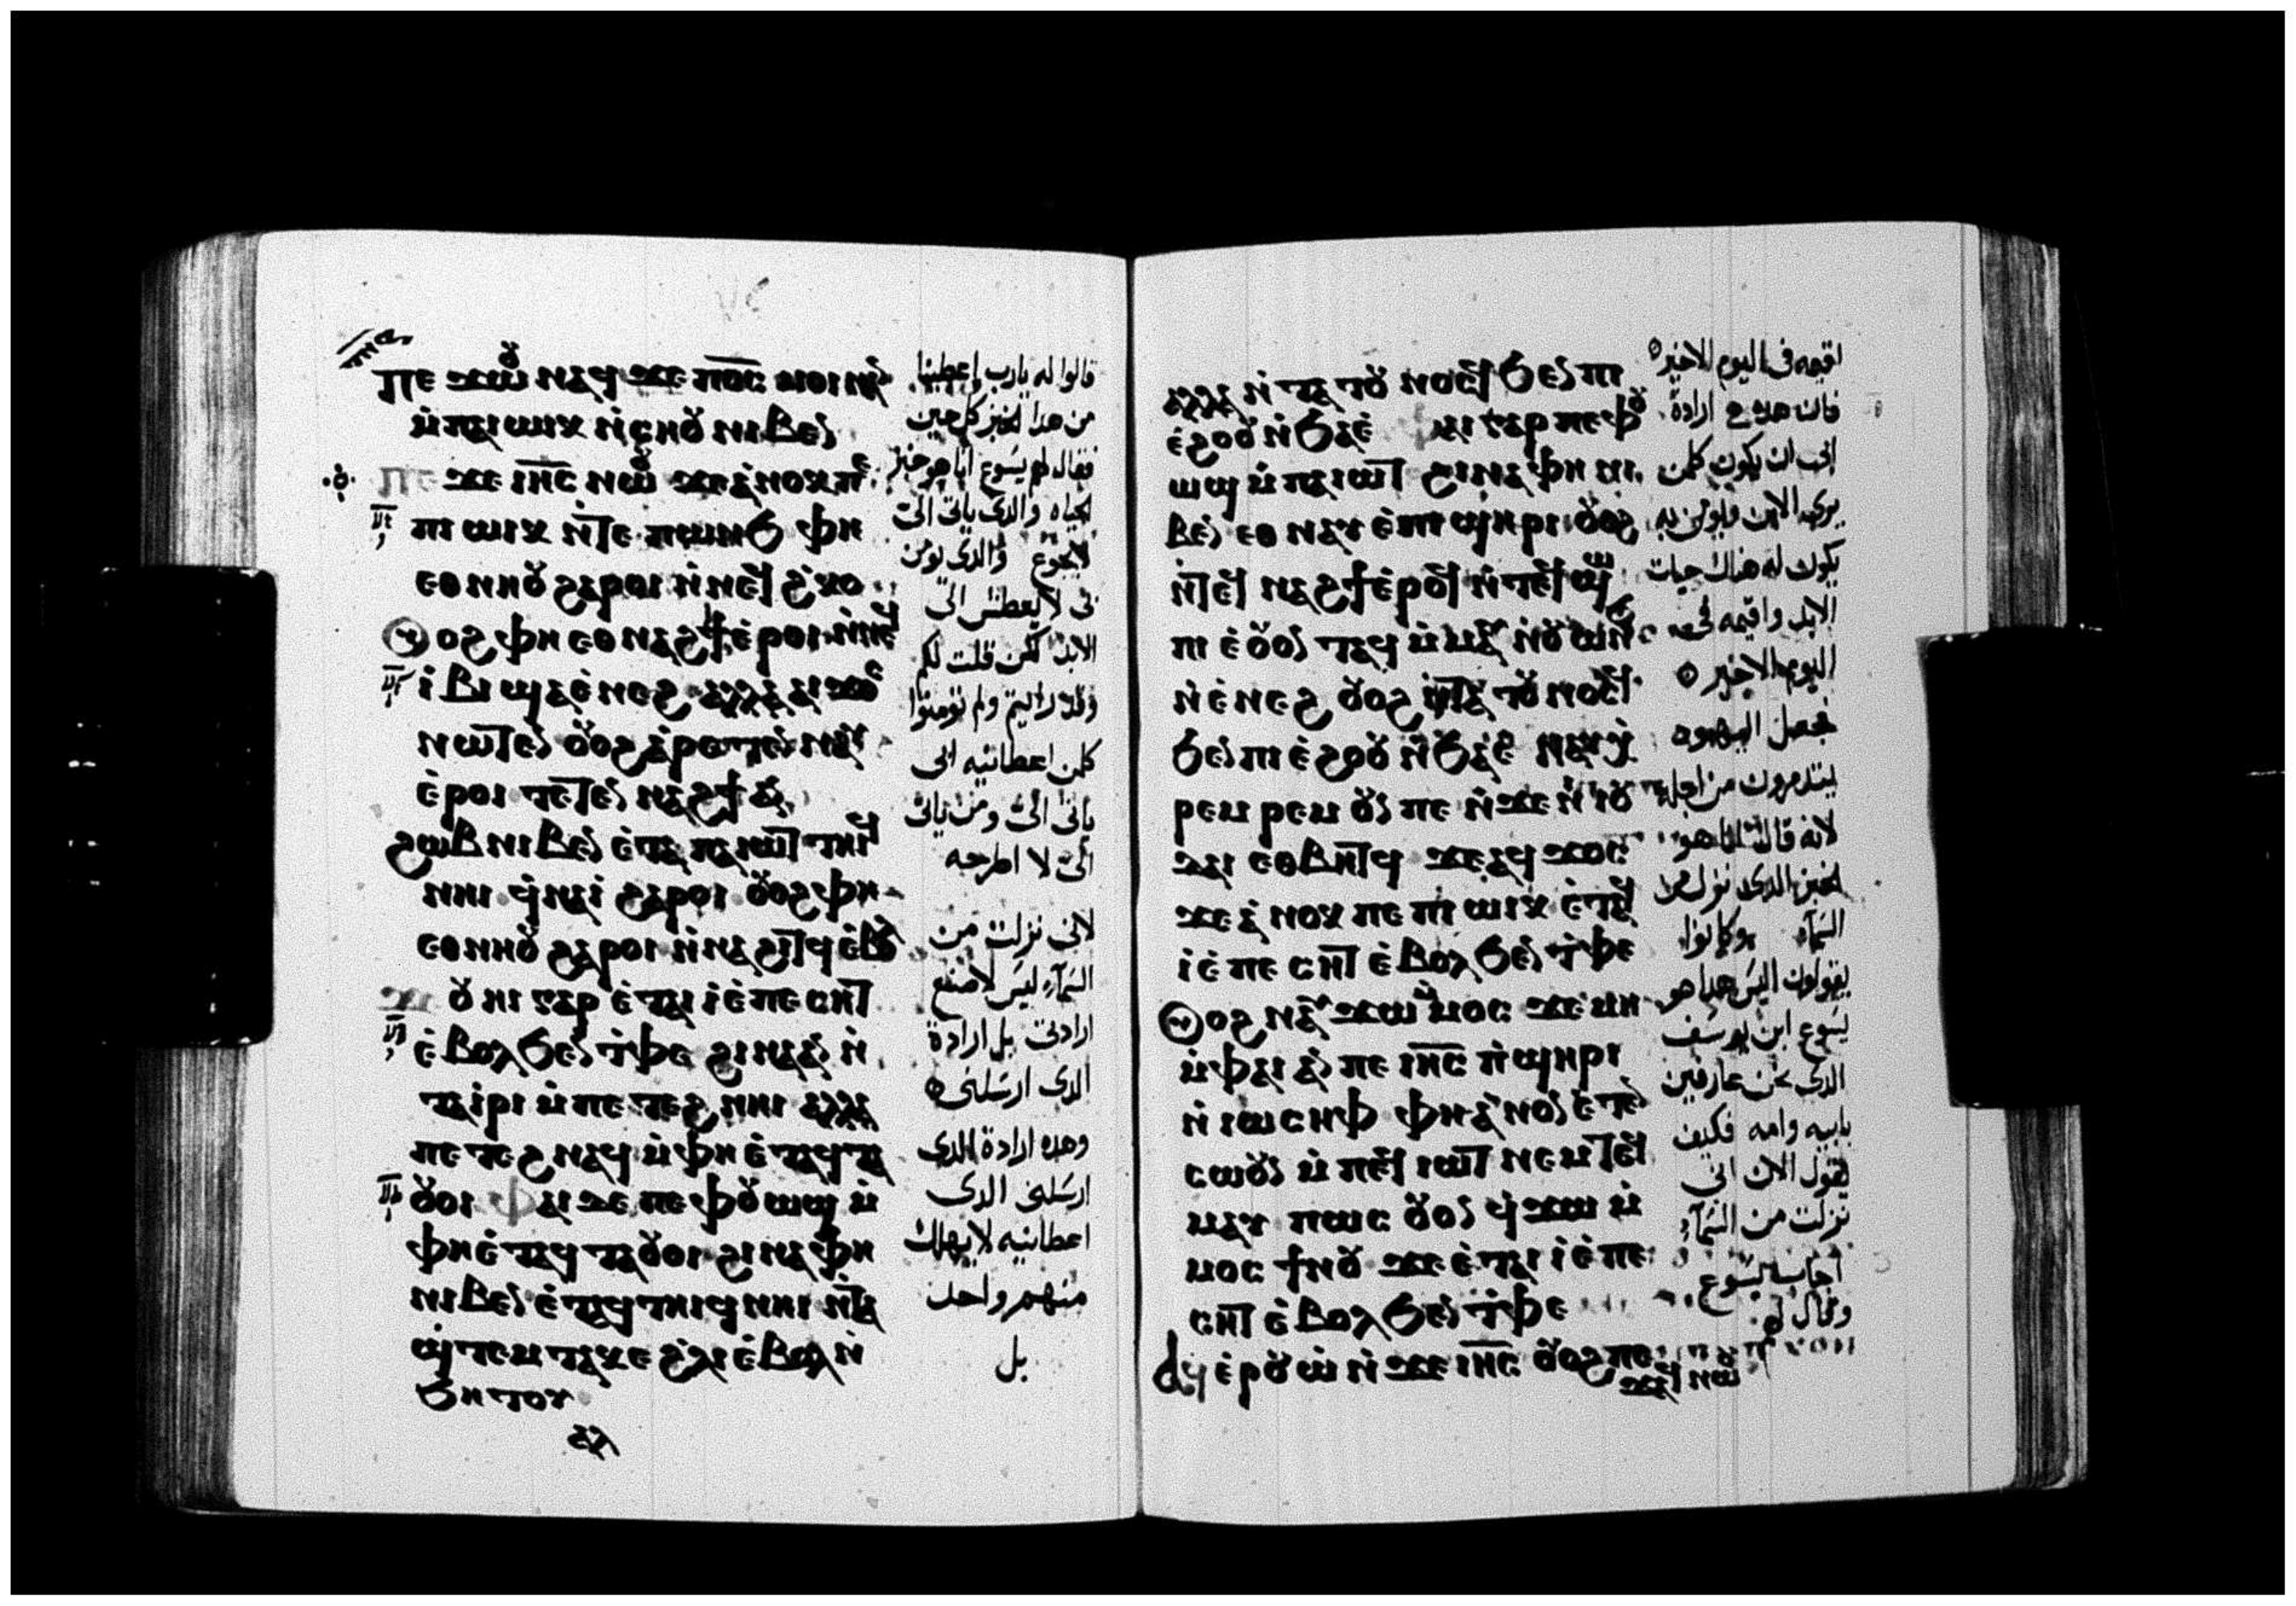 ⲡⲉϫⲱⲟⲩ ⲛⲁϥ ϫⲉ ⲡ̅ⲟ̅ⲥ̅ ⲙⲟⲓ ⲛⲁⲛ
ⲙ̇ⲡⲁⲓⲱⲓⲕ ⲛ̇ⲥⲏⲟⲩ ⲛⲓⲃⲉⲛ
ⲡⲉϫⲉ ⲓⲏ̅ⲥ̅ ⲛⲱⲟⲩ ϫⲉ ⲁ̇ⲛⲟⲕ ⲡⲉ
ⲡⲓⲱⲓⲕ ⲛ̇ⲧⲉ ⲡⲱⲛϧ ⲫⲏ
ⲉⲑⲛⲏⲟⲩ ϩⲁⲣⲟⲓ ⲛ̇ⲛⲉϥϩ̇ⲕⲟ
ⲟⲩⲟϩ ⲫⲏ ⲉⲑⲛⲁϩϯ ⲉ̇ⲣⲟⲓ ⲛ̇ⲛⲉϥ
ⲓ̇ⲃⲓ ϣⲁ ⲉ̇ⲛⲉϩ ⲁⲗⲗⲁ ⲁⲓϫⲟⲥ
ⲛⲱⲧⲉⲛ ⲟⲩⲟϩ ⲁ̇ⲣⲉⲧⲉⲛⲛⲁⲩ
ⲉ̇ⲣⲟⲓ ⲧⲉⲧⲉⲛⲛⲁϩϯ ⲁⲛ
ϩⲱⲃ ⲛⲓⲃⲉⲛ ⲉ̇ⲧⲁ ⲡⲁⲓⲱⲧ ⲧⲏⲓϥ
ⲛⲏⲓ ϥ̇ⲛⲁⲓ̇ ϩⲁⲣⲟⲓ ⲟⲩⲟϩ ⲫⲏ
ⲉⲑⲛⲏⲟⲩ ϩⲁⲣⲟⲓ ⲛ̇ⲛⲁϩⲓⲧϥ ⲉ̇ⲃⲟⲗ
ϫⲉ ⲟⲩⲏⲓ ⲅⲁⲣ ⲉ̇ⲧⲁⲓ ⲓ̇ ⲉ̇ⲡⲉⲥⲏⲧ
ⲉ̇ⲃⲟⲗ ϧⲉⲛ ⲧ̇ⲫⲉ ϩⲓⲛⲁ ⲁⲛ ⲛ̇
ⲧⲁⲓ̇ⲣⲓ ⲙ̇ⲡⲉⲧⲉϩⲛⲏⲓ ⲁⲗⲗⲁ
ⲡⲉⲧⲉϩⲛⲁϥ ⲙ̇ⲫⲏ ⲉ̇ⲧⲁϥⲧⲁ
ⲟⲩⲟⲓ ⲫⲁⲓ ϫⲉ ⲡⲉ ⲫⲟⲩⲱϣ ⲙ̇
ⲫⲏ ⲉ̇ⲧⲁϥⲧⲁⲟⲩⲟⲓ ϩⲓⲛⲁ ⲫⲏ
ⲛⲓⲃⲉⲛ ⲉ̇ⲧⲁϥⲧⲏⲓϥ ⲛⲏⲓ ⲛ̇ⲧⲁ
ϣ̇ⲧⲉⲙⲧⲁⲕⲉ ϩ̇ⲗⲓ ⲉ̇ⲃⲟⲗ ⲛ̇
ϧⲏⲧⲟⲩ
ⲁⲗ
قالوا له يارب اعطينا
من هدا الخبز كل حين
فقال لهم يسوع انا هو خبز
الحياه والدى ياتى الى
لايجوع والدى يومن
بى لا يعطش الى
الابد لكن قلت لكم
وقد رايتم ولم تومنوا
كلمن اعطانيه ابى
ياتى الى ومن ياتى
الى لا اطرحه
لانى نزلت من
السمآء ليس لاصنع
ارادتى بل ارادة
الدى ارسلنى
وهده ارادة الدى
ارسلنى الدى
اعطانيه لايهلك
منهم واحد
بل
ⲁⲗⲗⲁ ⲛ̇ⲧⲁⲧⲟⲩⲛⲟⲥϥ ϧⲉⲛ ⲡⲓ
ⲉ̇ϩⲟⲟⲩ ⲛ̇ϧⲁⲉ̇ ⲫⲁⲓ ⲅⲁⲣ ⲡⲉ ⲫⲟⲩ
ⲱϣ ⲙ̇ⲡⲁⲓⲱⲧ ϩⲓⲛⲁ ⲫⲏ ⲛⲓ
ⲃⲉⲛ ⲉⲑⲛⲁⲩ ⲉ̇ⲡⲓϣⲏⲣⲓ ⲟⲩⲟϩ
ⲛ̇ⲧⲉϥⲛⲁϩϯ ⲉ̇ⲣⲟϥ ⲛ̇ⲧⲉϥϣⲱ
ⲡⲓ ⲉ̇ⲟⲩⲟⲛⲧⲁϥ ⲙ̇ⲙⲁⲩ ⲛ̇ⲟⲩⲱⲛϧ
ⲛ̇ⲉ̇ⲛⲉϩ ⲟⲩⲟϩ ⲛ̇ⲧⲁⲧⲟⲩⲛⲟⲥϥ
ϧⲉⲛ ⲡⲓⲉ̇ϩⲟⲟⲩ ⲛ̇ϧⲁⲉ̇ ⲛⲁⲩⲭ̇
ⲣⲉⲙⲣⲉⲙ ⲟⲩⲛ ⲡⲉ ⲛ̇ϫⲉ ⲛⲓⲓⲟⲩ
ⲇⲁⲓ ⲉⲑⲃⲏⲧϥ ϫⲉ ⲁϥϫⲟⲥ
ϫⲉ ⲁ̇ⲛⲟⲕ ⲡⲉ ⲡⲓⲱⲓⲕ ⲉ̇ⲧⲁϥ
ⲓ̇ ⲉ̇ⲡⲉⲥⲏⲧ ⲉ̇ⲃⲟⲗ ϧⲉⲛ ⲧ̇ⲫⲉ
ⲟⲩⲟϩ ⲛⲁⲩϫⲱ ⲙ̇ⲙⲟⲥ ϫⲉ ⲙⲏ
ⲙ̇ⲫⲁⲓ ⲁⲛ ⲡⲉ ⲓⲏ̅ⲥ̅ ⲡ̇ϣⲏⲣⲓ
ⲛ̇ⲓⲱⲥⲏⲫ ⲫⲏ ⲁ̇ⲛⲟⲛ ⲉ̇ⲧⲉⲛ
ⲥⲱⲟⲩⲛ ⲙ̇ⲡⲉϥⲓⲱⲧ ⲛⲉⲙ ⲧⲉϥ
ⲙⲁⲩ ⲡⲱⲥ ⲟⲩⲛ ϥ̇ϫⲱ ⲙ̇
ⲙⲟⲥ ϯⲛⲟⲩ ϫⲉ ⲉ̇ⲧⲁⲓ ⲓ̇ ⲉ̇ⲡⲉ
ⲥⲏⲧ ⲉ̇ⲃⲟⲗ ϧⲉⲛ ⲧ̇ⲫⲉ
ⲁϥⲉ̇ⲣⲟⲩⲱ̇ ⲛ̇ϫⲉ ⲓⲏ̅ⲥ̅ ⲟⲩⲟϩ ⲡⲉ
ϫⲁϥ ⲛⲱⲟⲩ
اقيمه فى اليوم الاخير
فان هده هى ارادة
ابى ان يكون كلمن
يرى الابن ويومن به
يكون له هناك حيات
الابد واقيمه فى
اليوم الاخير
فجعل اليهود
يتدمرون من اجله
لانه قال انا هو
الخبز الدى نزل من
السمآء وكانوا
يقولون اليس هدا هو
يسوع ابن يوسف
الدى نحن عارفين
بابيه وامه فكيف
يقول الان انى
نزلت من السمآء
اجاب يسوع
وقال لهم